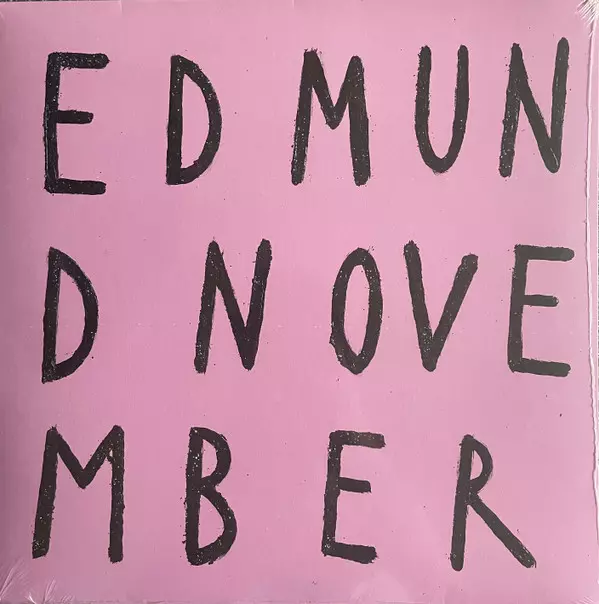 EDMUN
D NOVE
MBER